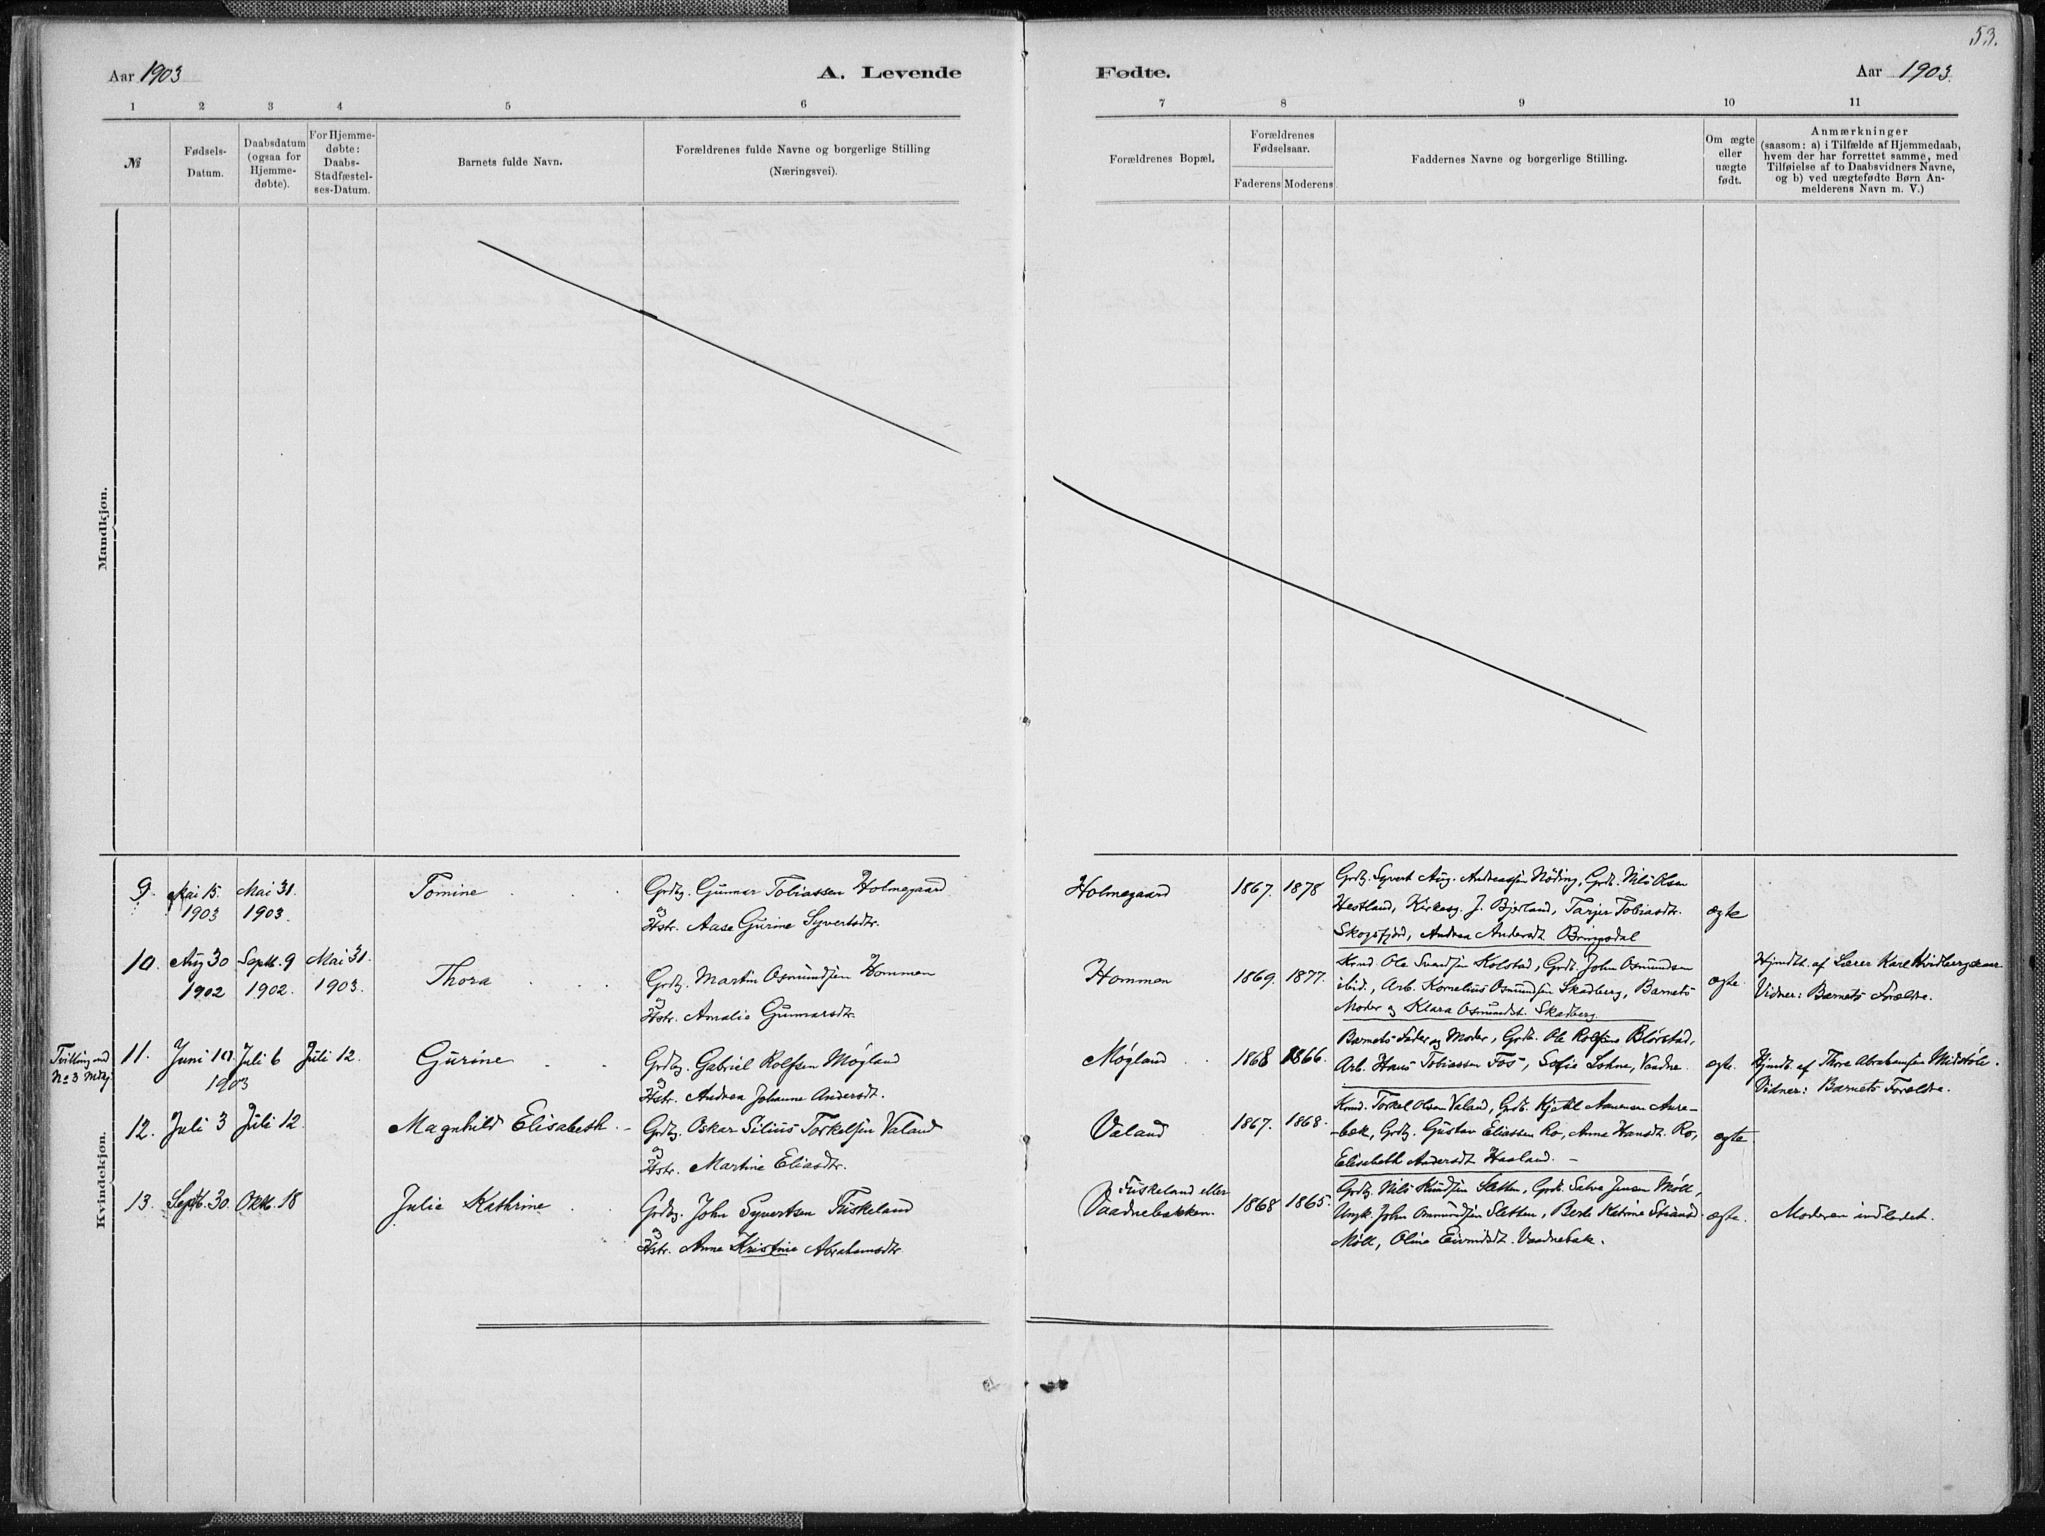 53.
Aar 1903
A. Levende
Fødte.
Aar 1903.
1 2 3 4 5 6 7 8 9 10 11
№
Fødsels-
Datum.
Daabsdatum
(ogsaa for
Hjemme-
døbte).
For Hjemme-
døbte:
Daabs-
Stadfæstel-
ses-Datum.
Barnets fulde Navn.
Forældrenes fulde Navne og borgerlige Stilling
(Næringsvei).
Forældrenes Bopæl.
Forældrenes
Fødselsaar.
Faderens Moderens
Faddernes Navne og borgerlige Stilling.
Om ægte
eller
uægte
født.
Anmærkninger
(saasom: a) i Tilfælde af Hjemmedaab,
hvem der har forrettet samme, med
Tilføielse af to Daabsvidners Navne,
og b) ved uægtefødte Børn An-
melderens Navn m. V.)
Mandkjøn.
Kvindekjøn.
9. Mai 15. 1903
Mai 31. 1903.
Tomine
Grdbg. Gunnar Tobiassen Holmegaard
og
Hstr. Aase Gurine Syvertsdtr.
Holmegaard
1867. 1878
Grdbg. Syvert Aug. Andreassen Nøding, Grdb. Nils Olsen
Hestland, Kirkesg. J. Bjerland, Tarjer Tobiasdtr.
Skogsfjord, Andrea Andersdt. Bringsdal
ægte
10. Aug 30 1902
Septb. 9 1902.
Mai 31. 1903.
Thora
Grdbg. Martin Osmundsen Hommen
og
Hstr. Amalie Gunnarsdtr.
Hommen
1869. 1877.
Ole Svendsen Kolstad, Grdb. John Osmundsen
ibid., Arb. Kornelius Osmundsen Skadberg, Barnets
Moder og Klara Osmundsdt. Skadberg.
ægte.
Hjmdbt. af Lærer Karl
Vidner: Barnets Forældre.
Tvilling med
No 3 Mdkj
11. Juni 10. 1903
Juli 6
Juli 12.
Gurine
Grdbg. Gabriel Rolfsen Møgland
og
Hstr. Andrea Johanne Andersdt.
Møgland
1868 1866.
Barnets Fader og Moder, Grdb. Ole Rolfsen Blørstad,
Arb. Hans Tobiassen Fos, Sofie Lohne, Vaadne.
ægte.
Hjmdb. af Thore Abrahamsen Midbøle.
Vidner: Barnets Forældre.
12. Juli 3
Juli 12.
Magnhild Elisabeth.
Grdbg. Oskar Silius Torkelsen Valand
og
Hstr. Martine Eliasdtr.
Valand
1867. 1868.
Torkel Olsen Valand, Grdb. Kjetil Aanensen Aure-
bæk, Grdbg. Gustav Eliassen Ro, Anna Hansdt. Ro,
Elisabeth Andersdt. Haaland.
ægte
13. Septb. 30.
Oktb. 18
Julie Kathrine
Grdbg. John Syvertsen Fuskeland
og
Hstr. Anne Kristine Abrahamsdtr.
Fuskeland eller
Vaadnebakken.
1868 1865.
Grdbg. Nils Knudsen Sletten, Grdb. Salve Jensen Møll,
Ungk. John Osmundsen Sletten, Berte Katrine
Møll, Oline Eivindsdt. Vaadnebak.
ægte.
Moderen indledet.